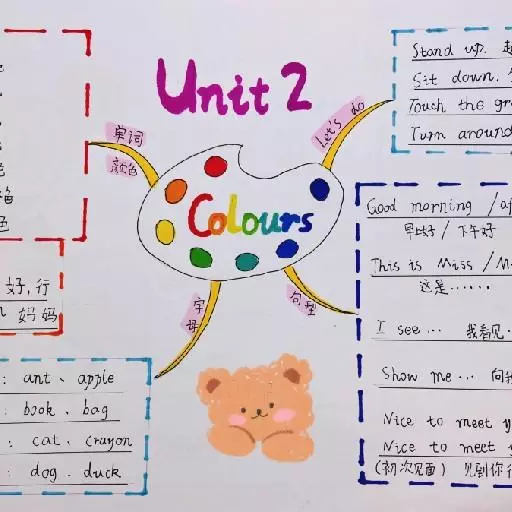 Unit 2
Colours
单词
颜色
Let's do
字母
句型
色
好，行
妈妈
: ant、apple
: book、bag
: cat、crayon
: dog、duck
Stand up.
Sit down.
Touch the
Turn around
Good morning /
早上好 / 下午好
This is Miss /
这是……
I see … 我看见
Show me …
Nice to meet
Nice to meet
(初次见面) 见到你